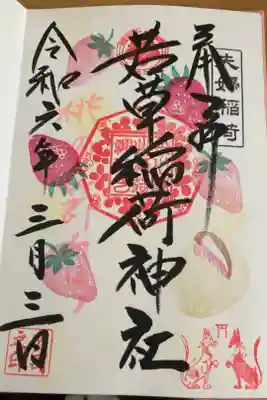 奉拝
夫婦稲荷
若草稲荷神社
令和六年 三月三日